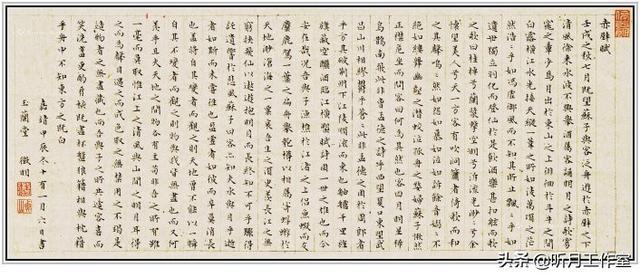 赤壁賦
壬戌之秋七月既望蘇子與客泛舟遊於赤壁之下
清風徐來水波不興舉酒屬客誦明月之詩歌窈
窕之章少焉月出於東山之上徘徊於斗牛之間
白露橫江水光接天縱一葦之所如凌萬頃之茫
然浩浩乎如馮虛御風而不知其所止飄飄乎如
遺世獨立羽化而登仙於是飲酒樂甚扣舷而歌
之歌曰桂棹兮蘭槳擊空明兮泝流光渺渺兮余
懷望美人兮天一方客有吹洞簫者倚歌而和
之其聲嗚嗚然如怨如慕如泣如訴餘音嫋嫋不
絕如縷舞幽壑之潛蛟泣孤舟之嫠婦蘇子愀然
正襟危坐而問客曰何為其然也客曰月明星稀
烏鵲南飛此非孟德之詩乎西望夏口東望武
昌山川相繆鬱乎蒼蒼此非孟德之困於周郎者
乎方其破荊州下江陵順流而東也舳艫千里旌
旗蔽空釃酒臨江橫槊賦詩固一世之雄也而今
安在哉況吾與子漁樵於江渚之上侶魚蝦而友
麋鹿駕一葉之扁舟舉匏樽以相屬寄蜉蝣於
天地渺滄海之一粟哀吾生之須臾羨長江之無
窮挾飛仙以遨遊抱明月而長終知不可乎驟得
託遺響於悲風蘇子曰客亦知夫水與月乎逝
者如斯而未嘗往也盈虛者如彼而卒莫消長
也蓋將自其變者而觀之則天地曾不能以一瞬
自其不變者而觀之則物與我皆無盡也而又何
羨乎且夫天地之間物各有主苟非吾之所有雖
一毫而莫取惟江上之清風與山間之明月耳得
之而為聲目遇之而成色取之無禁用之不竭是
造物者之無盡藏也而吾與子之所共適客喜而
笑洗盞更酌肴核既盡杯盤狼籍相與枕藉
乎舟中不知東方之既白
嘉靖甲辰冬十有一月六日書
玉蘭堂 徵明
头条 @听月工作室